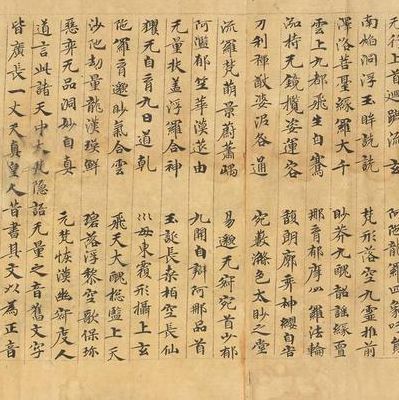 无行上首迴蹠流玄　阿陀龍羅四象吁員
南焰洞浮玉眸詵詵　梵形落空九靈推前
澤洛菩臺緣羅大千　眇莽九醜韶謠緣邅
雲上九都飛生自騫　那育郁摩羅法輪
持无鏡攬姿運容　馥朗廓弈神纓自宮
刀利禪猷婆泥咎通　宛藪滌色太眇之堂
流羅梵萌景蔚蕭嵎　易邈无寂宛首少都
阿濫郁竺華漠莚由　九開自辯阿那品首
无量扶蓋浮羅合神　玉誕長桑栢空長仙
玃无自育九日道乾　巛母東覆形攝上玄
陁羅育邈眇氣合雲　飛天大醜惣監上天
沙陁劫量龍漢瑛鮮　碧落浮黎空歌保珎
惡弈无品洞妙自真　元梵恢漠幽寂度人
道言此諸天中大梵隱語无量之音舊文字
皆廣長一丈天真皇人昔書其文以為正音